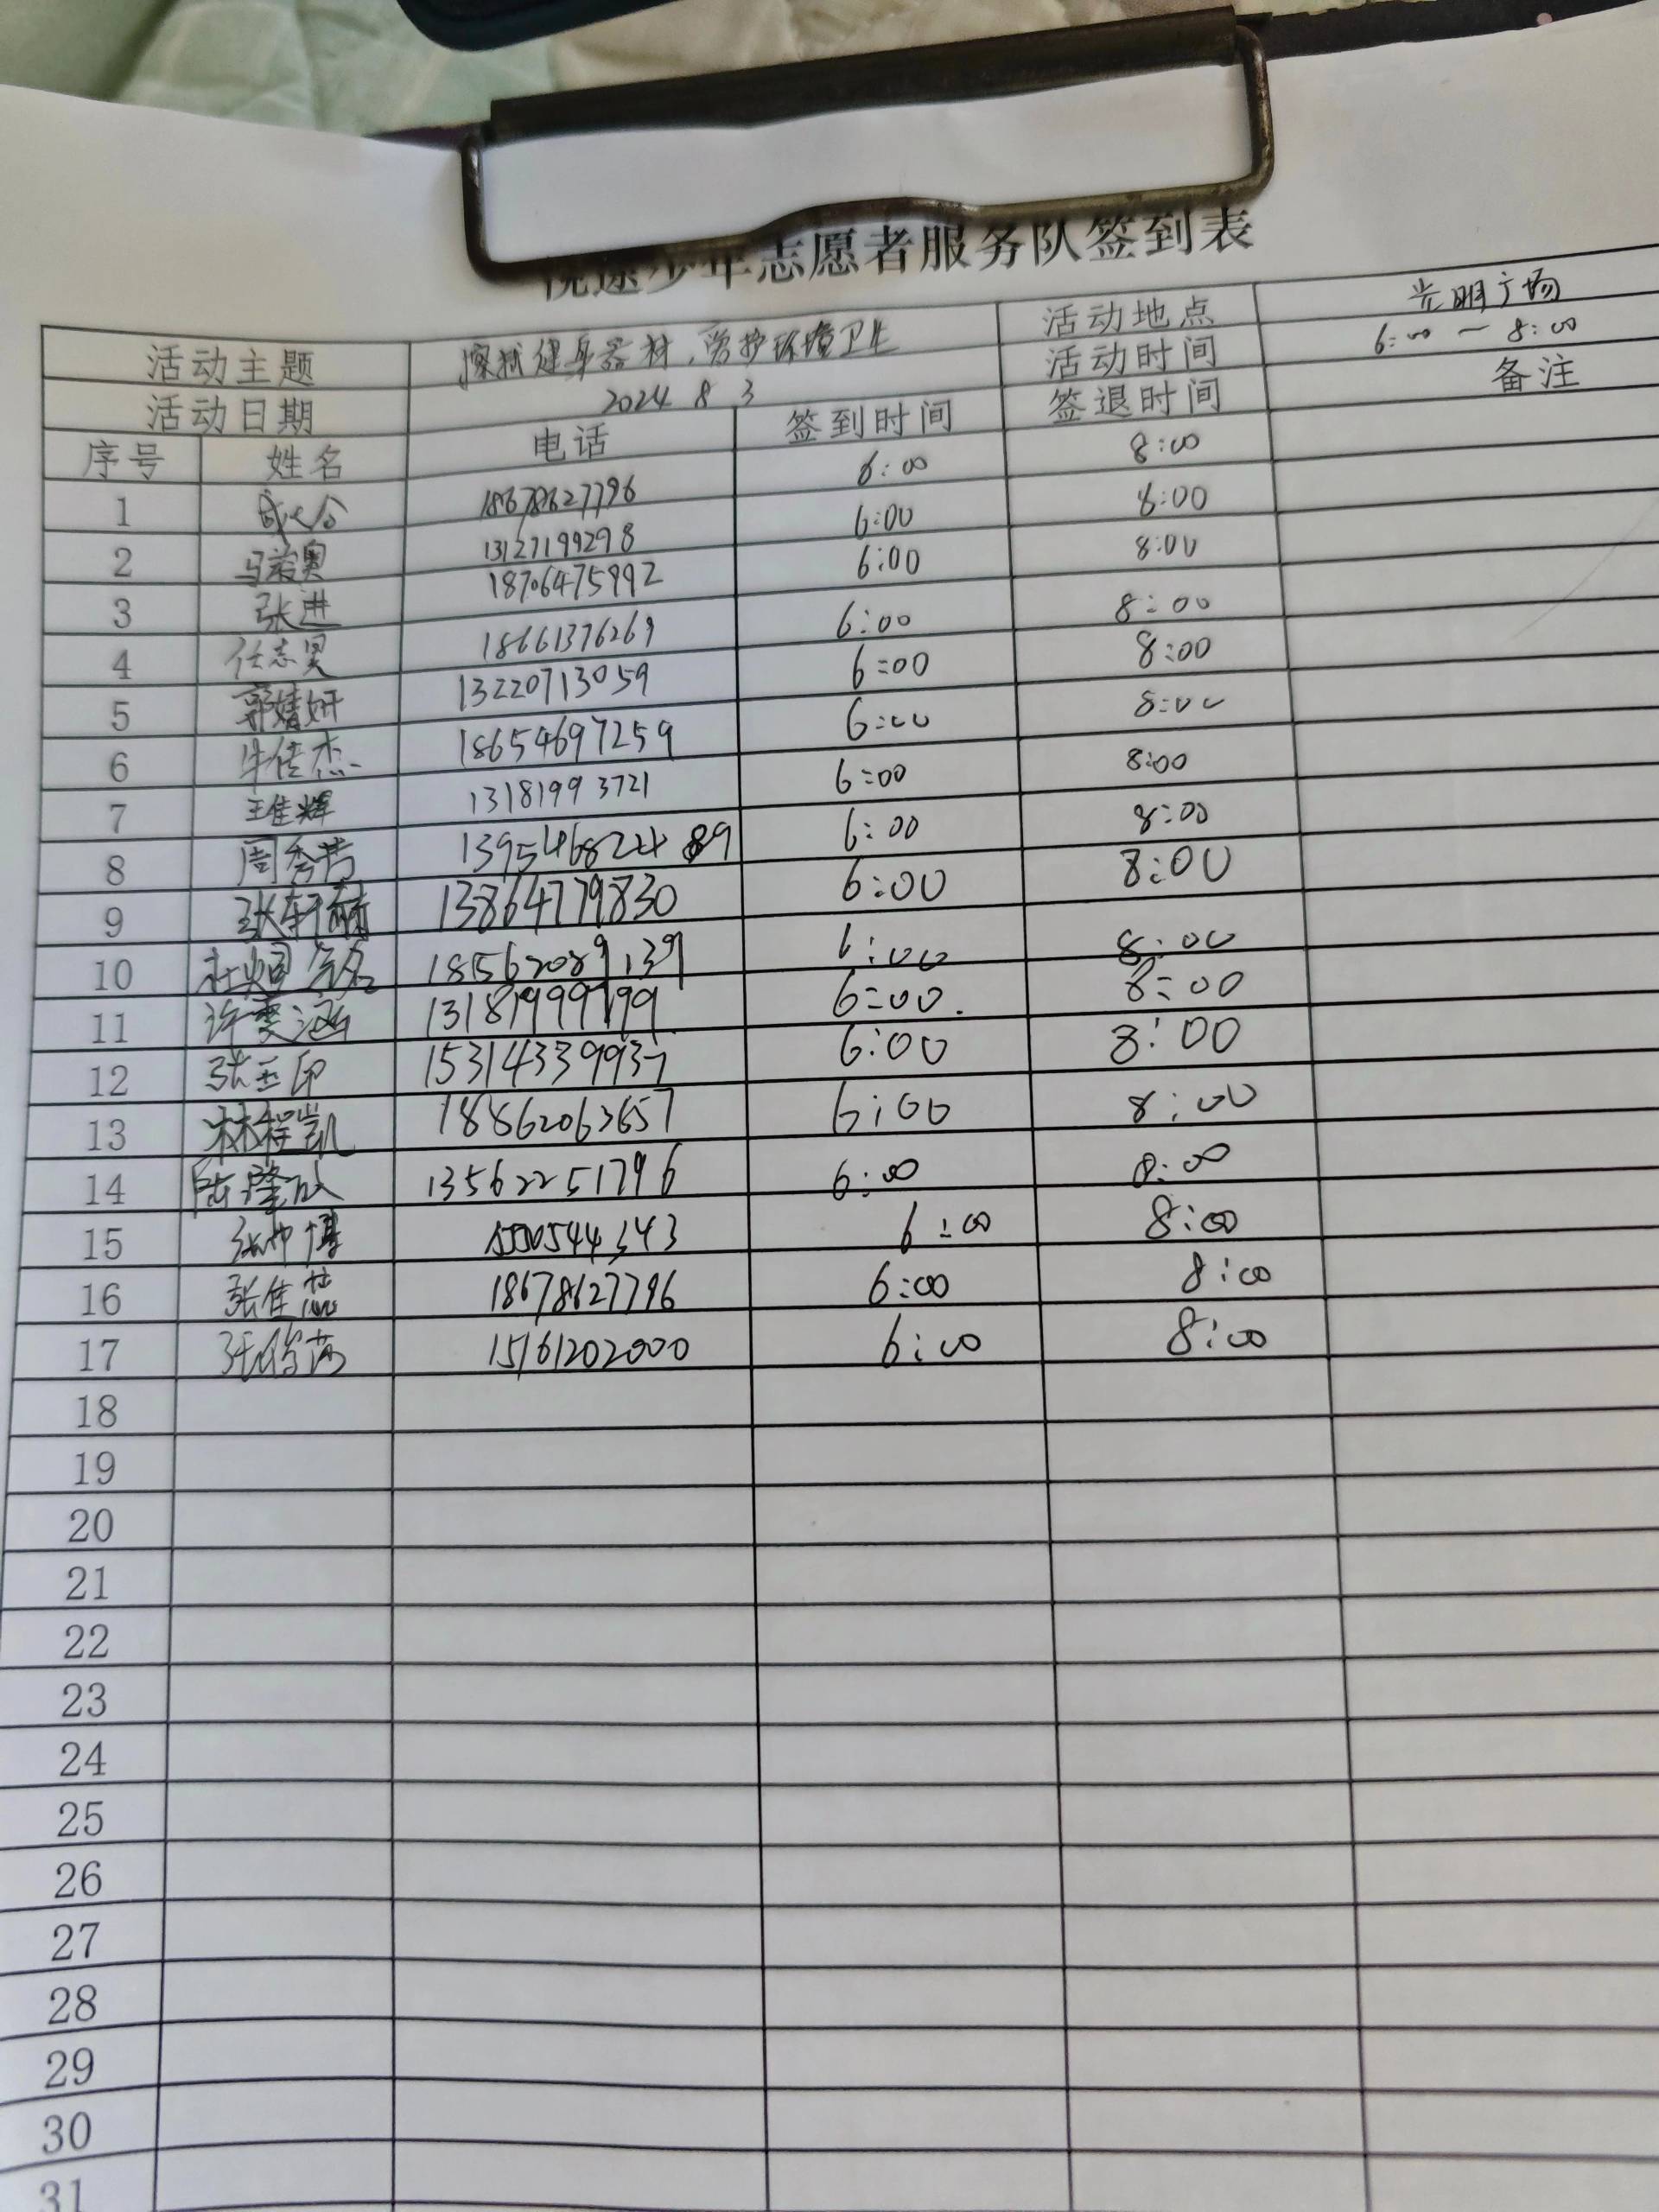 少年志愿者服务队签到表
活动主题 擦拭健身器材，爱护环境卫生 活动地点 光明广场
活动日期 2024 8 3 活动时间 6:00 — 8:00
序号 姓名 电话 签到时间 签退时间 备注
1 18678627796 6:00 8:00
2 13127199298 6:00 8:00
3 张进 18706475992 6:00 8:00
4 任志昊 18661376269 6:00 8:00
5 郭婧妍 13220713059 6:00 8:00
6 牛佳杰 18654697259 6:00 8:00
7 王佳辉 13181993721 6:00 8:00
8 周秀 6:00 8:00
9 张轩赫 13864779830 6:00 8:00
10 18562089139 6:00 8:00
11 许雯涵 13181999799 6:00 8:00
12 张玉印 15314339937 6:00 8:00
13 林程凯 18862063657 6:00 8:00
14 陆隆 13562251796 6:00 8:00
15 博 6:00 8:00
16 张佳 18678627796 6:00 8:00
17 15161202000 6:00 8:00
18
19
20
21
22
23
24
25
26
27
28
29
30
31